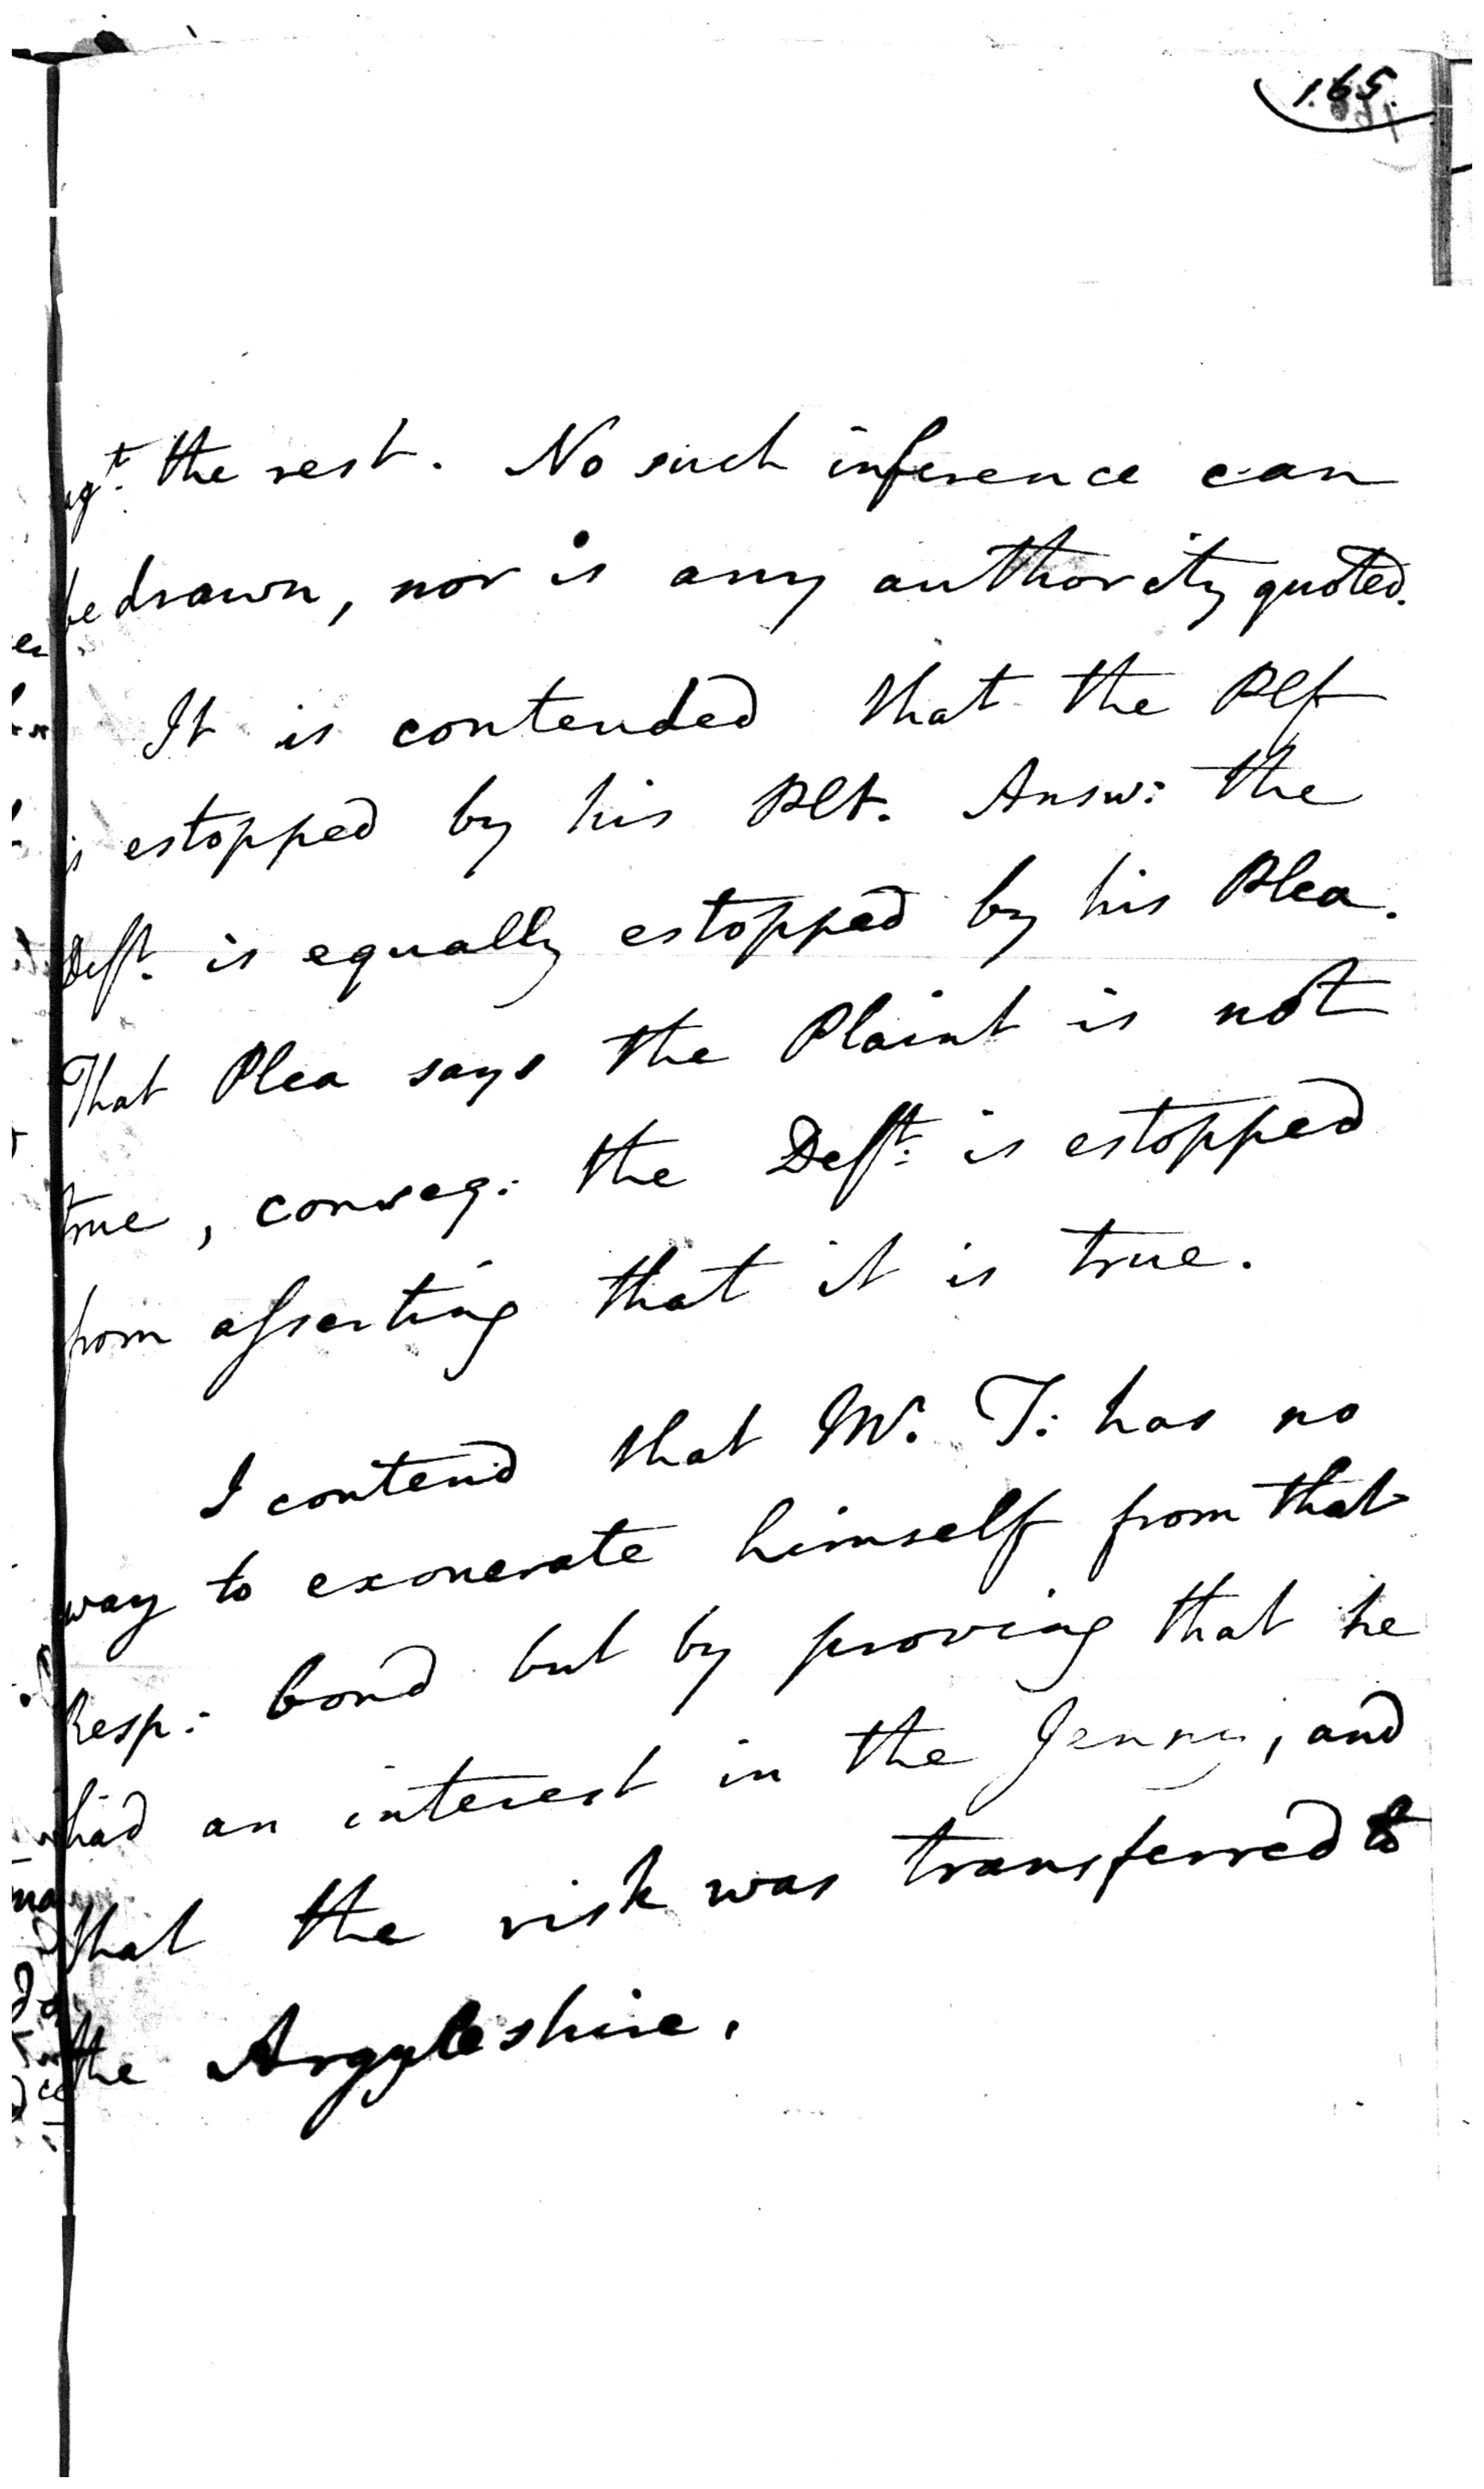 165.
agt. the rest. No such inference can
be drawn, nor is any authority quoted.
It is contended that the Plf
is estopped by his Plt. Answ: the
Deft. is equally estopped by his Plea.
That Plea says the Plaint is not
true, conseq: the Deft: is estopped
from asserting that it is true.
I contend that Mr. T: has no
way to exonerate himself from that
Resp: bond but by proving that he
had an interest in the Jenny, and
that the risk was transferred to
the Argyleshire.